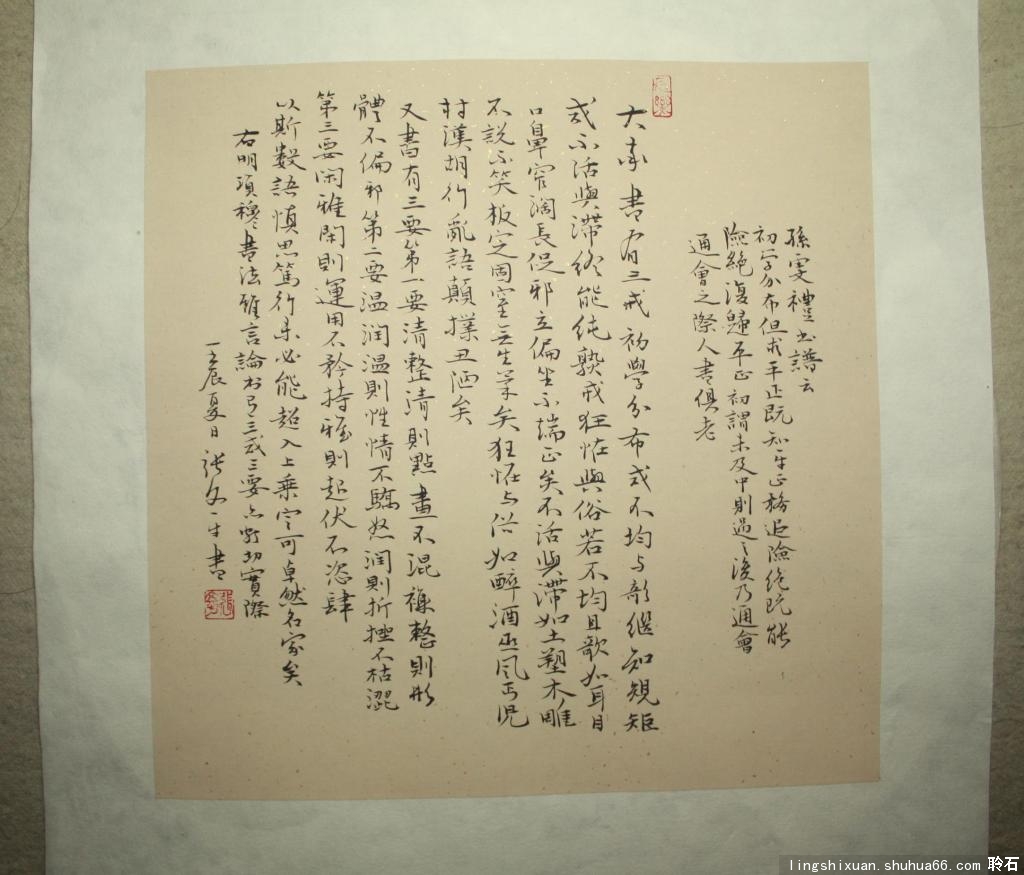 孫虔禮书譜云
初学分布但求平正既知平正務追險绝既能
險絶復歸平正初謂未及中則過之後乃通會
通會之際人書俱老
大率書有三戒初學分布戒不均与欹繼知規矩
戒不活與滯終能纯熟戒狂怪與俗若不均且欹如耳目
口鼻窄阔長促邪立偏坐不端正矣不活與滯如土塑木雕
不説不笑板定固窒无生氣矣狂怪与俗如醉酒巫风丐児
村漢胡行亂語顛撲丑陋矣
又書有三要第一要清整清則點畫不混雜整則形
體不偏邪第二要温潤温則性情不驕怒潤則折挫不枯澀
第三要闲雅闲則運用不矜持雅則起伏不恣肆
以斯數語慎思篤行未必能超入上乘定可卓然名家矣
右明項穆書法雅言論书有三戒三要切實際
壬辰夏日張書
lingshixuan.shuhua66.com 聆石